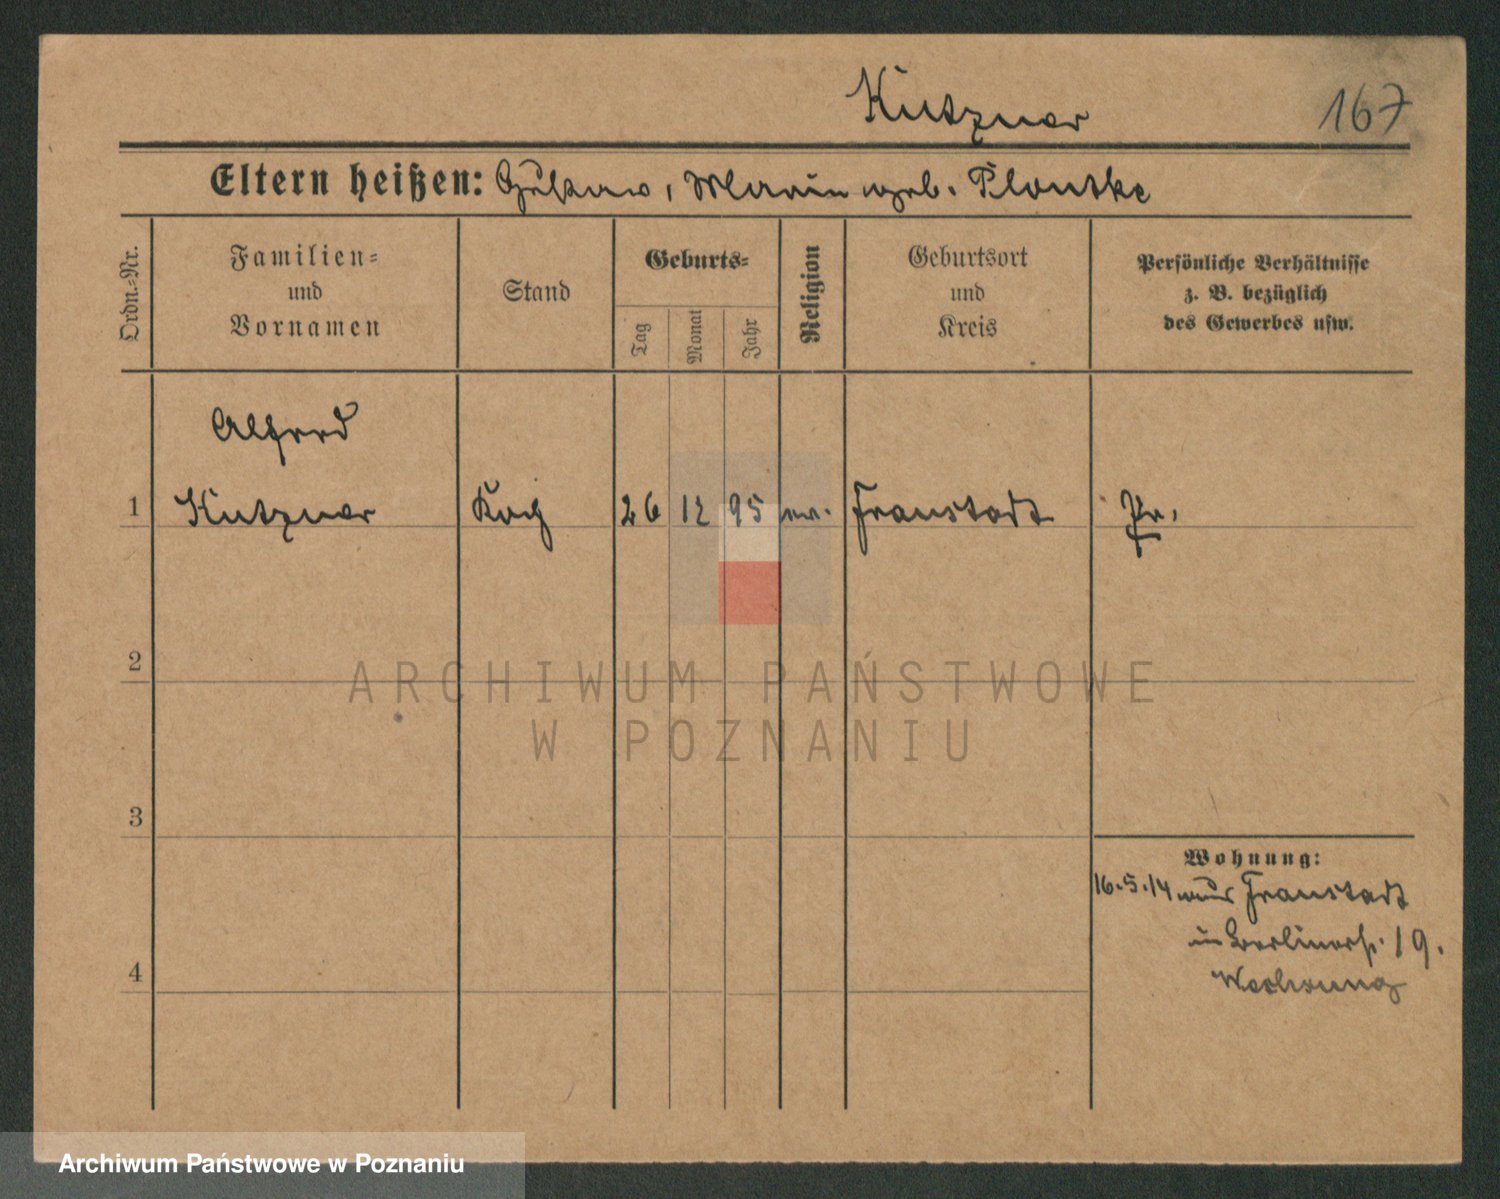 Kutzner
167
Eltern heißen: Gustav, Maria geb. Plontke
Ordn.-Nr.
Familien-
und
Vornamen
Stand
Geburts-
Tag
Monat
Jahr
Religion
Geburtsort
und
Kreis
Persönliche Verhältnisse
z. B. bezüglich
des Gewerbes usw.
Alfred
1 Kutzner Koch 26 12 95 ev. Fraustadt Pr.
2
ARCHIWUM PAŃSTWOWE
W POZNANIU
3
Wohnung:
16.5.14 aus Fraustadt
in Berlinerstr. 19.
4
Archiwum Państwowe w Poznaniu